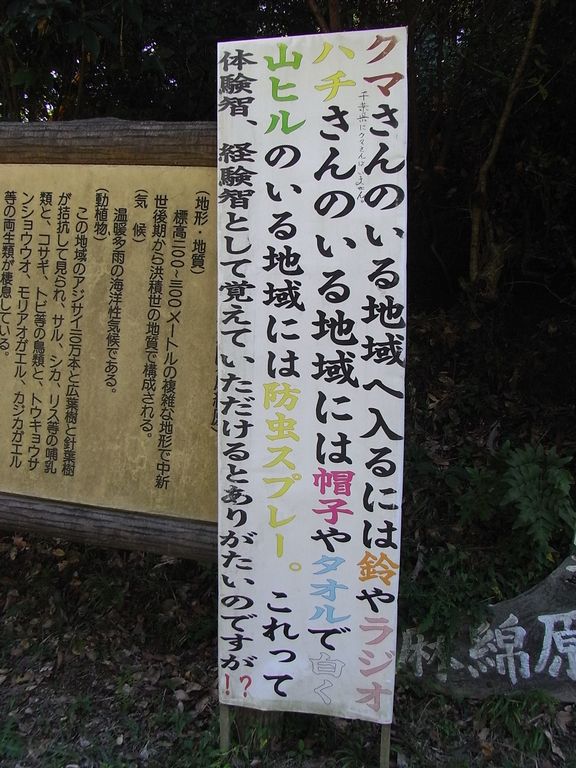 クマさんのいる地域へ入るには鈴やラジオ
千葉県にクマさんはいません
ハチさんのいる地域には帽子やタオルで白く
山ヒルのいる地域には防虫スプレー。これって
体験智、経験智として覚えていただけるとありがたいのですが!?
(地形・地質)
標高二〇〇~三〇〇メートルの複雑な地形で中新
世後期から洪積世の地質で構成される。
(気 候)
温暖多雨の海洋性気候である。
(動植物)
この地域のアジサイ二〇万本と広葉樹と針葉樹
が拮抗して見られ、サル、シカ、リス等の哺乳
類と、コサギ、トビ等の鳥類と、トウキョウサ
ンショウウオ、モリアオガエル、カジカガエル
等の両生類が棲息している。
麻綿原